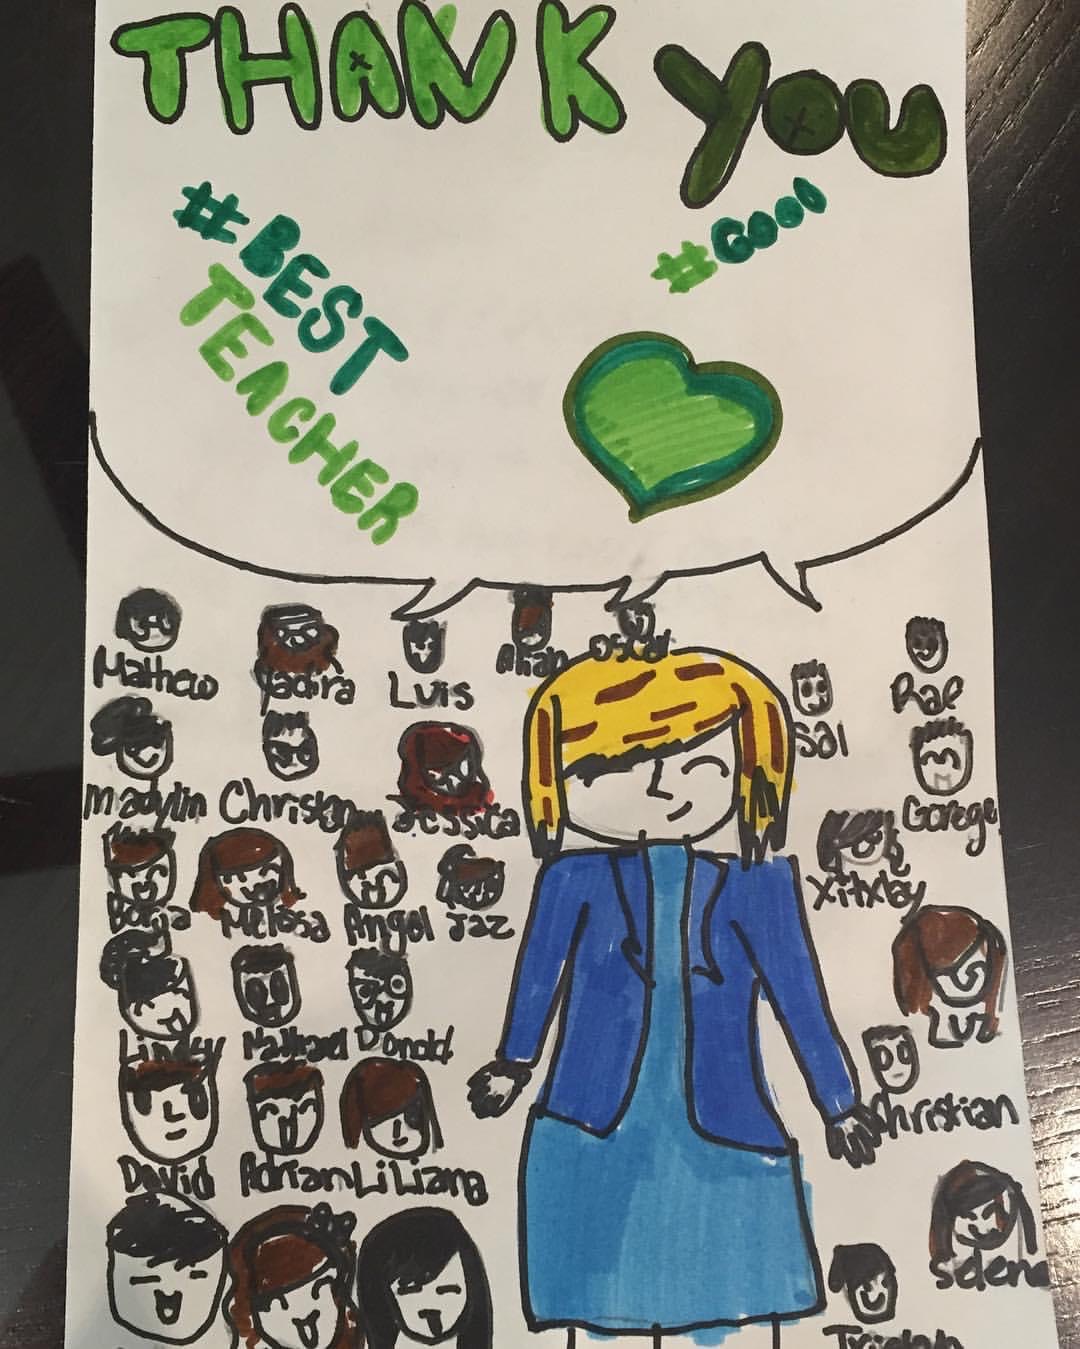 THANK YOU
#BEST
TEACHER
#GOOD
Mathew
Yadira
Luis
Alian
Oscar
Sai
Rae
Madylin
Christian
Jessica
Gorege
Borja
Melissa
Angel
Jaz
Xitxlay
Luz
Lindsy
Nathanael
Donold
Christian
David
Adrian
LiLiana
Selena